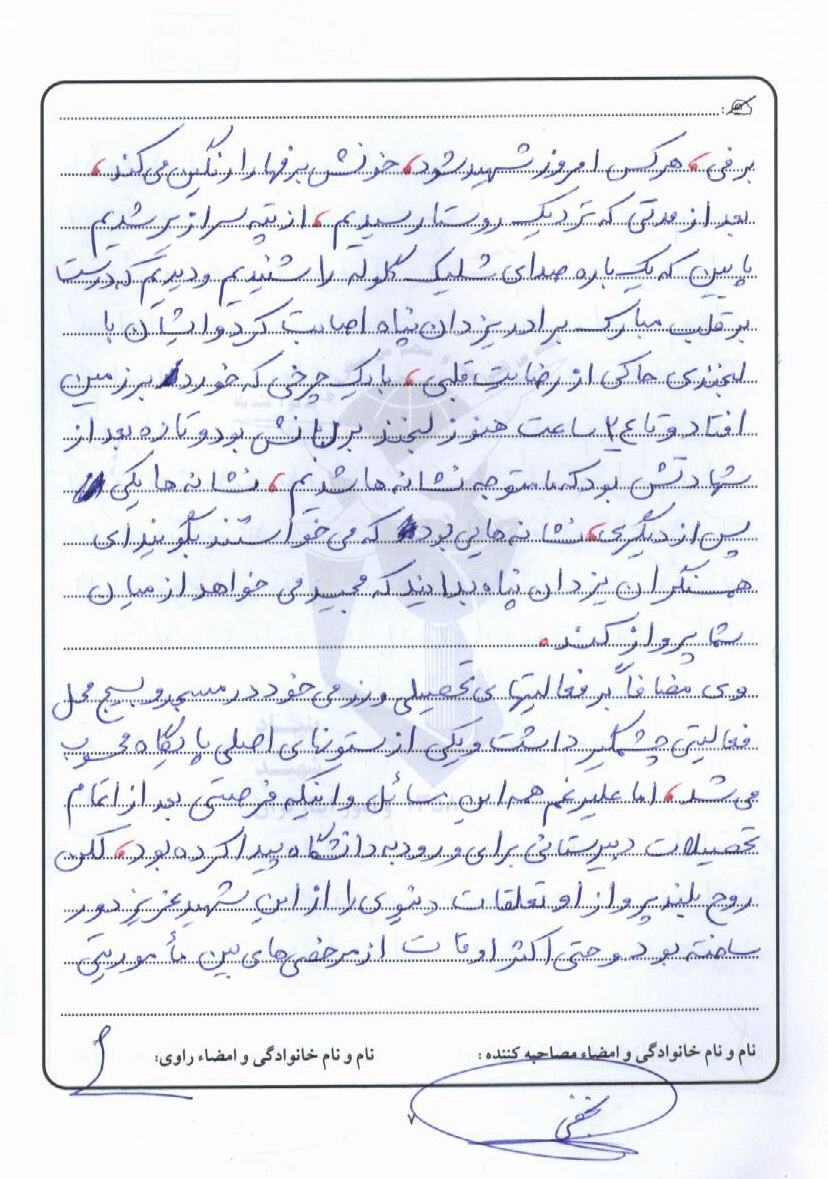 برفی، هرکس امروز شهید شود، خونش برفها را رنگین می کند،
بعد از مدتی که نزدیک روستا رسیدیم، از تپه سرازیر شدیم
پایین که یک باره صدای شلیک گلوله را شنیدیم و دیدیم که درست
بر قلب مبارک برادر یزدان پناه اصابت کرد و ایشان با
لبخندی حاکی از رضایت قلبی، با یک چرخی که خورد بر زمین
افتاد و تا ۲۴ ساعت هنوز لبخند بر لبانش بود و تازه بعد از
شهادتش بود که ما متوجه نشانه ها شدیم، نشانه ها یکی
پس از دیگری، نشانه هایی بود که می خواستند بگویند ای
همسنگران یزدان پناه بدانید که مجید می خواهد از میان
شما پرواز کند.
وی مضافاً بر فعالیتهای تحصیلی و رزمی خود در مسجد و بسیج محل
فعالیتی چشمگیر داشت و یکی از ستونهای اصلی پایگاه محسوب
می شد، اما علیرغم همه این مسائل و اینکه فرصتی بعد از اتمام
تحصیلات دبیرستانی برای ورود به دانشگاه پیدا کرده بود، لکن
روح بلند پرواز او تعلقات دنیوی را از این شهید عزیز دور
ساخته بود و حتی اکثر اوقات از مرخصی های بین مأموریتی
نام و نام خانوادگی و امضاء مصاحبه کننده : نام و نام خانوادگی و امضاء راوی:
۷